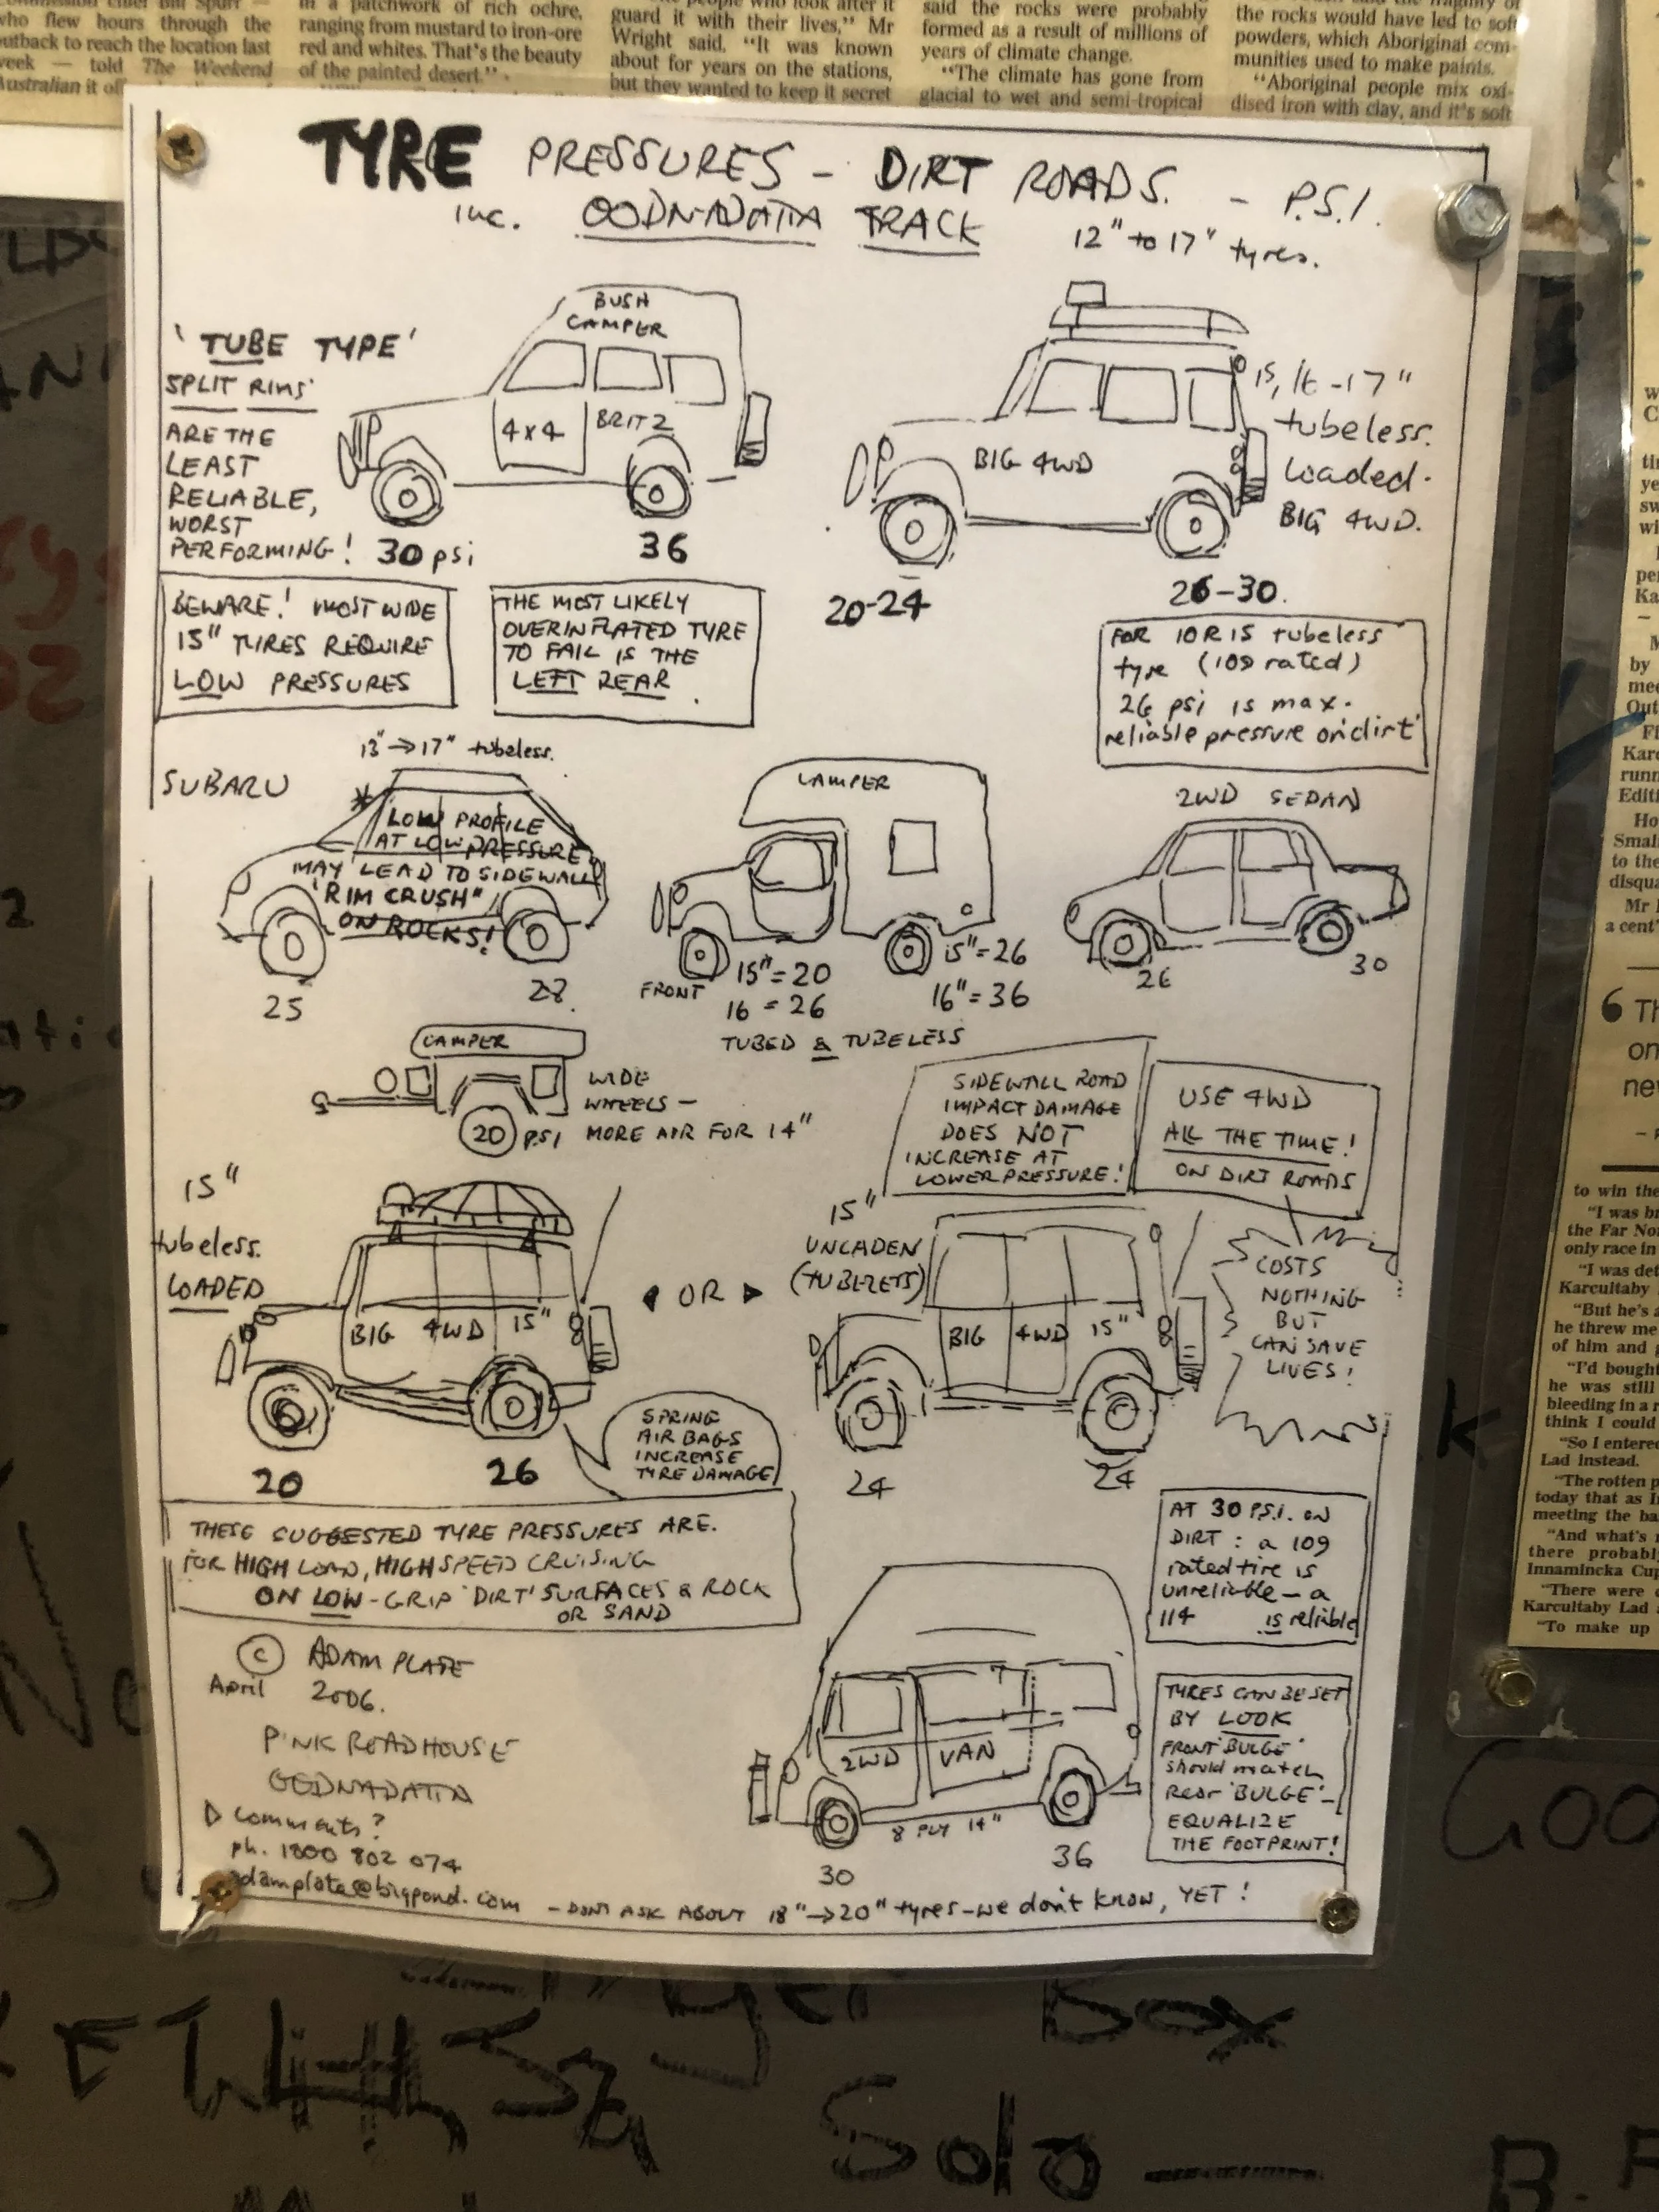 who flew hours through the
outback to reach the location last
week — told The Weekend
Australian it
in a patchwork of rich ochre,
ranging from mustard to iron-ore
red and whites. That's the beauty
of the painted desert."
guard it with their lives," Mr
Wright said. "It was known
about for years on the stations,
but they wanted to keep it secret
said the rocks were probably
formed as a result of millions of
years of climate change.
"The climate has gone from
glacial to wet and semi-tropical
the rocks would have led to soft
powders, which Aboriginal com-
munities used to make paints.
"Aboriginal people mix oxi-
dised iron with clay, and it's soft
TYRE PRESSURES - DIRT ROADS. - P.S.I.
inc. OODNADATTA TRACK
12" to 17" tyres.
'TUBE TYPE'
SPLIT RIMS
ARE THE
LEAST
RELIABLE,
WORST
PERFORMING!
BUSH
CAMPER
4x4 BRITZ
30 psi
36
BIG 4WD
15, 16 - 17"
tubeless.
Loaded.
BIG 4WD.
20-24
26-30.
BEWARE! MOST WIDE
15" TYRES REQUIRE
LOW PRESSURES
THE MOST LIKELY
OVERINFLATED TYRE
TO FAIL IS THE
LEFT REAR.
FOR 10R15 tubeless
tyre (109 rated)
26 psi is max.
reliable pressure on 'dirt'
SUBARU
13" → 17" tubeless.
LOW PROFILE
AT LOW PRESSURE
MAY LEAD TO SIDEWALL
"RIM CRUSH"
ON ROCKS!
25
28
CAMPER
FRONT
15" = 20
16 = 26
15" = 26
16" = 36
TUBED & TUBELESS
2WD SEDAN
26
30
CAMPER
20 PSI
WIDE
WHEELS -
MORE AIR FOR 14"
SIDEWALL ROAD
IMPACT DAMAGE
DOES NOT
INCREASE AT
LOWER PRESSURE!
USE 4WD
ALL THE TIME!
ON DIRT ROADS
COSTS
NOTHING
BUT
CAN SAVE
LIVES!
15"
tubeless.
LOADED
BIG 4WD 15"
20
26
OR
15"
UNLADEN
(TUBELESS)
BIG 4WD 15"
24
24
SPRING
AIR BAGS
INCREASE
TYRE DAMAGE
THESE SUGGESTED TYRE PRESSURES ARE.
FOR HIGH LOAD, HIGH SPEED CRUISING
ON LOW-GRIP 'DIRT' SURFACES & ROCK
OR SAND
AT 30 P.S.I. ON
DIRT: a 109
rated tire is
unreliable - a
114 is reliable
© ADAM PLATE
April 2006.
PINK ROADHOUSE
OODNADATTA
Comments?
ph. 1800 802 074
adamplate@bigpond.com
2WD VAN
8 PLY 14"
30
36
TYRES CAN BE SET
BY LOOK
FRONT 'BULGE'
should match
Rear 'BULGE' -
EQUALIZE
THE FOOTPRINT!
- DONT ASK ABOUT 18" → 20" tyres - we don't know, YET!
to win the
"I was
the Far No
only race in
"I was det
Karcultaby
"But he's a
he threw me
of him and
"I'd bought
he was still
bleeding in a
think I could
"So I entered
Lad instead.
"The rotten
today that as
meeting the
"And what's
there probably
Innamincka Cup
"There were
Karcultaby Lad
"To make up
Box
Solo